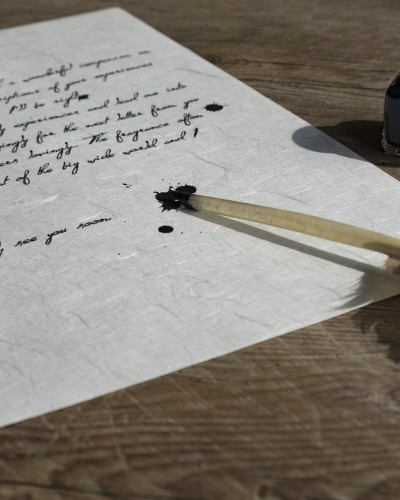 a wonderful companion on
descriptions of your experiences
I'll be right
experiences and lead me into
for the next letter from you
lovingly. The fragrance often
of the big wide world and I
see you soon